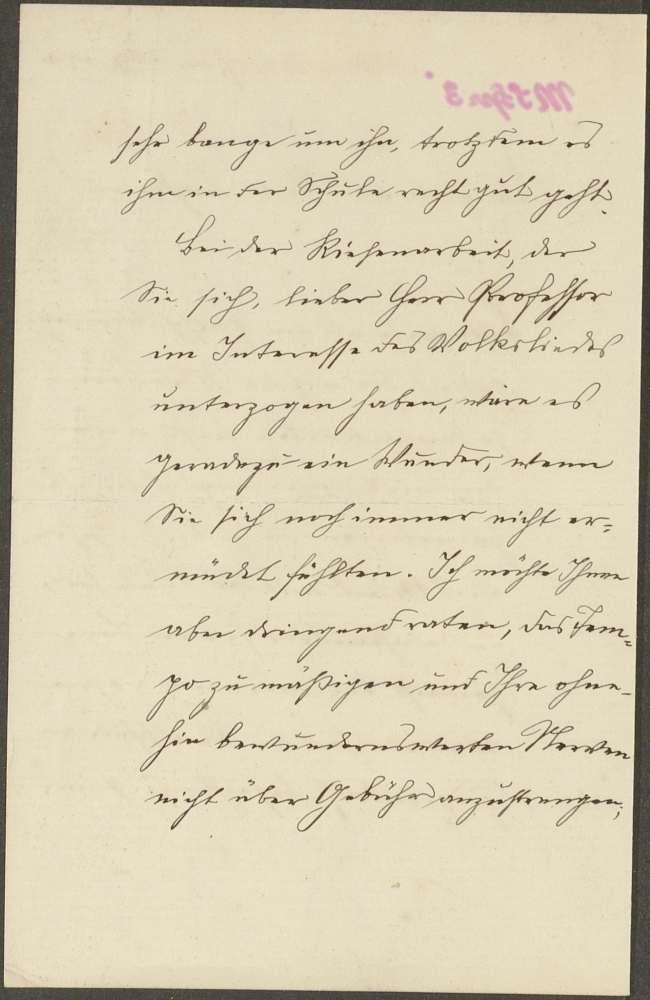 sehr bange um ihn, trotzdem es
ihm in der Schule recht gut geht.
Bei der Riesenarbeit, der
Sie sich, lieber Herr Professor
im Interesse des Volksliedes
unterzogen haben, wäre es
geradezu ein Wunder, wenn
Sie sich noch immer nicht er=
müdet fühlten. Ich möchte Ihnen
aber dringend raten, das Tem=
po zu mäßigen und Ihre ohne-
hin bewundernswerten Nerven
nicht über Gebühr anzustrengen;